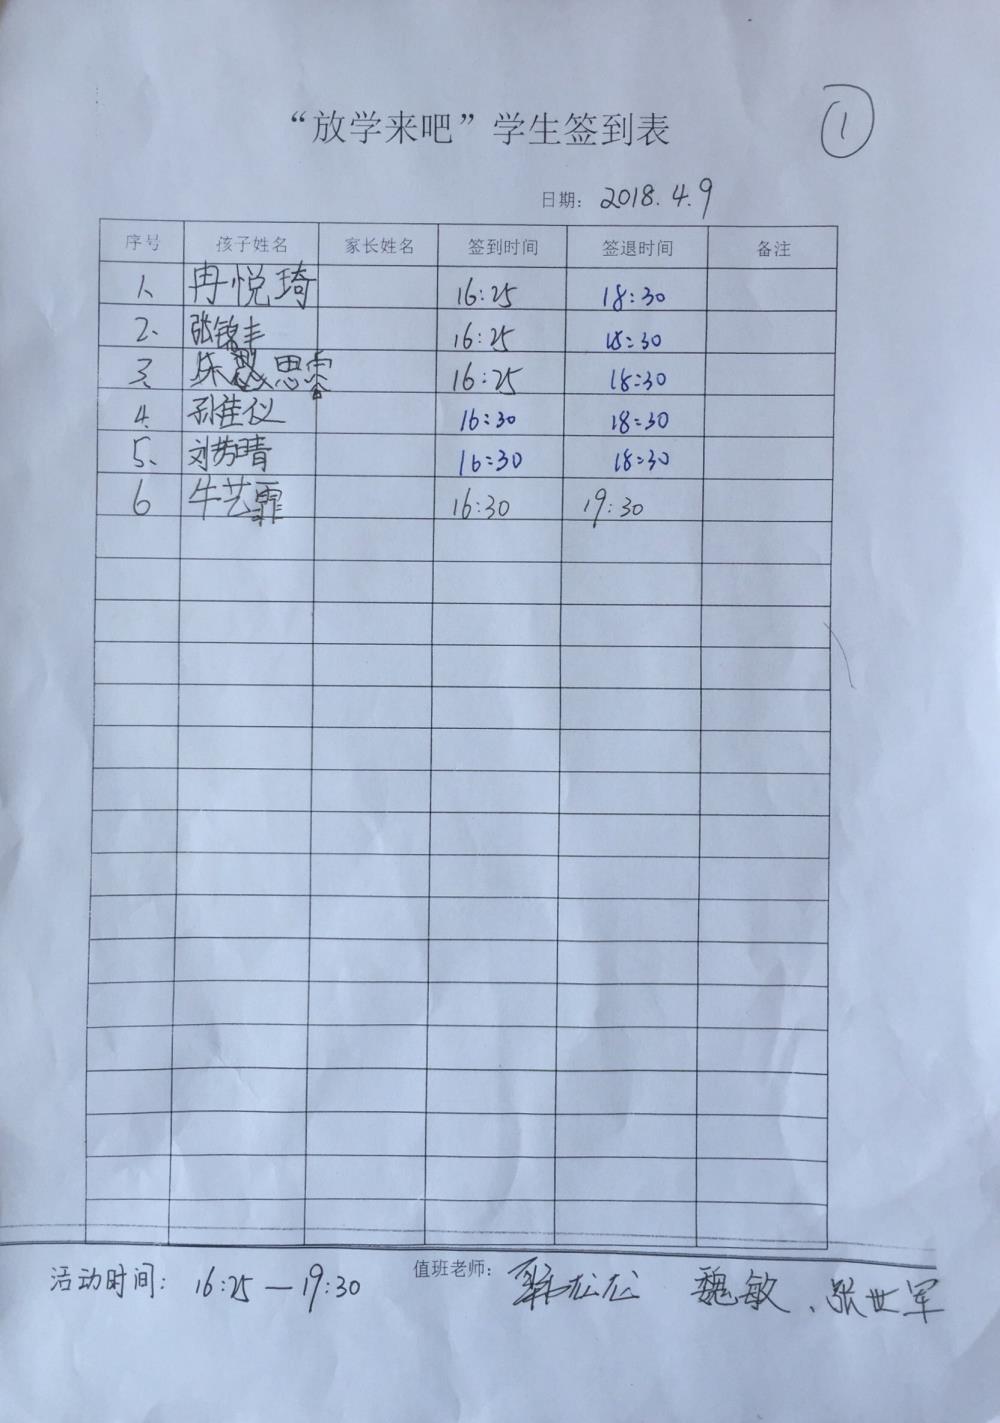 “放学来吧”学生签到表
①
日期： 2018.4.9
序号 孩子姓名 家长姓名 签到时间 签退时间 备注
1、 冉悦琦 16:25 18:30
2、 张锦丰 16:25 18:30
3、 思雷 16:25 18:30
4、 孙佳仪 16:30 18:30
5、 刘芳晴 16:30 18:30
6 牛艺霏 16:30 19:30
活动时间： 16:25—19:30 值班老师： 魏敏、张世军